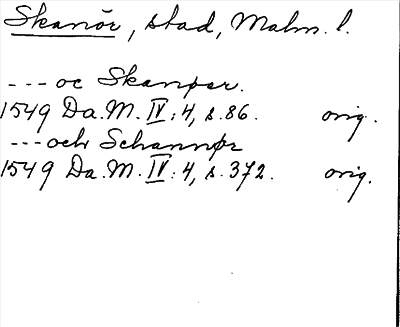 Skanör, stad, Malm. l.
--- oc Skanøer.
1549 Da. M. IV: 4, s. 86. orig.
--- och Schannør
1549 Da. M. IV: 4, s. 372. orig.